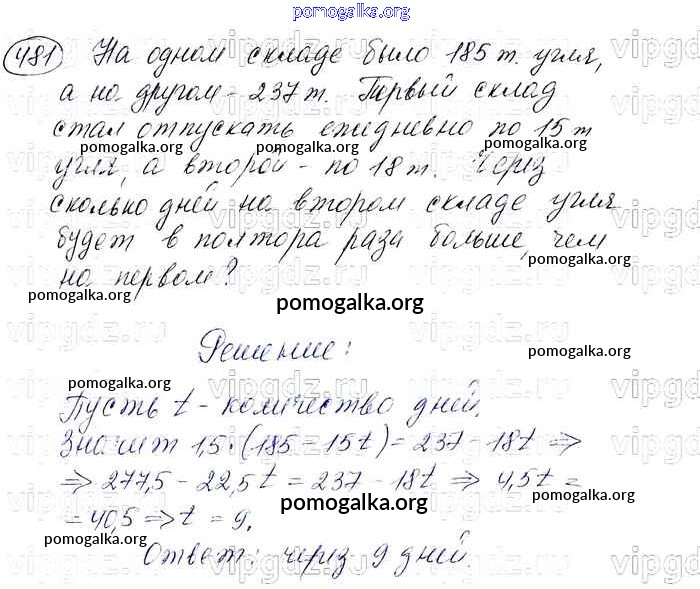 pomogalka.org
481 На одном складе было 185 т. угля,
а на другом - 237 т. Первый склад
стал отпускать ежедневно по 15 т
pomogalka.org pomogalka.org
угля, а второй - по 18 т. Через
сколько дней на втором складе угля
будет в полтора раза больше, чем
на первом?
pomogalka.org pomogalka.org
pomogalka.org
Решение:
pomogalka.org
pomogalka.org
Пусть t - количество дней.
Значит 1,5·(185 - 15t) = 237 - 18t ⇒
⇒ 277,5 - 22,5t = 237 - 18t ⇒ 4,5t =
pomogalka.org pomogalka.org
= 40,5 ⇒ t = 9.
Ответ: через 9 дней.
pomogalka.org pomogalka.org